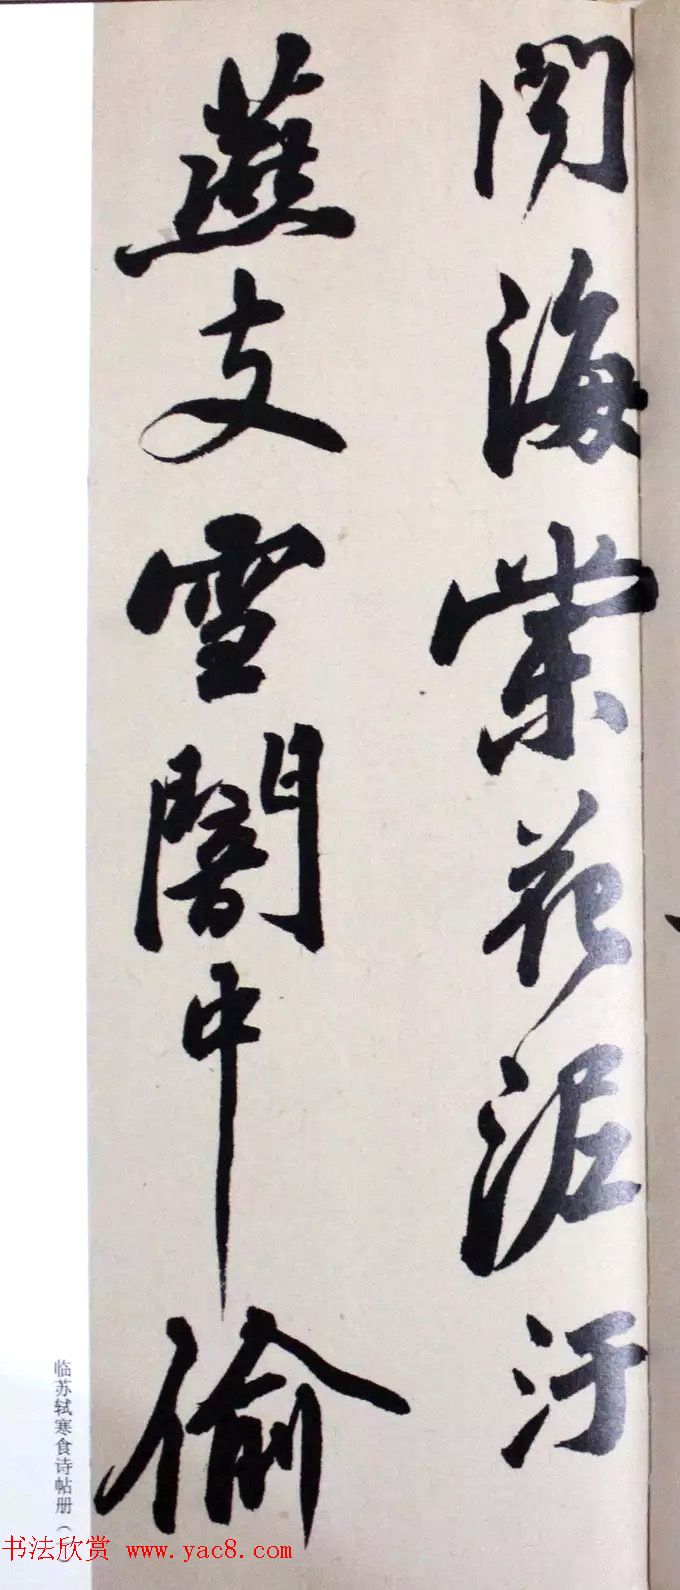 闻海棠花泥汙
燕支雪闇中偷
临苏轼寒食诗帖册
书法欣赏 www.yac8.com